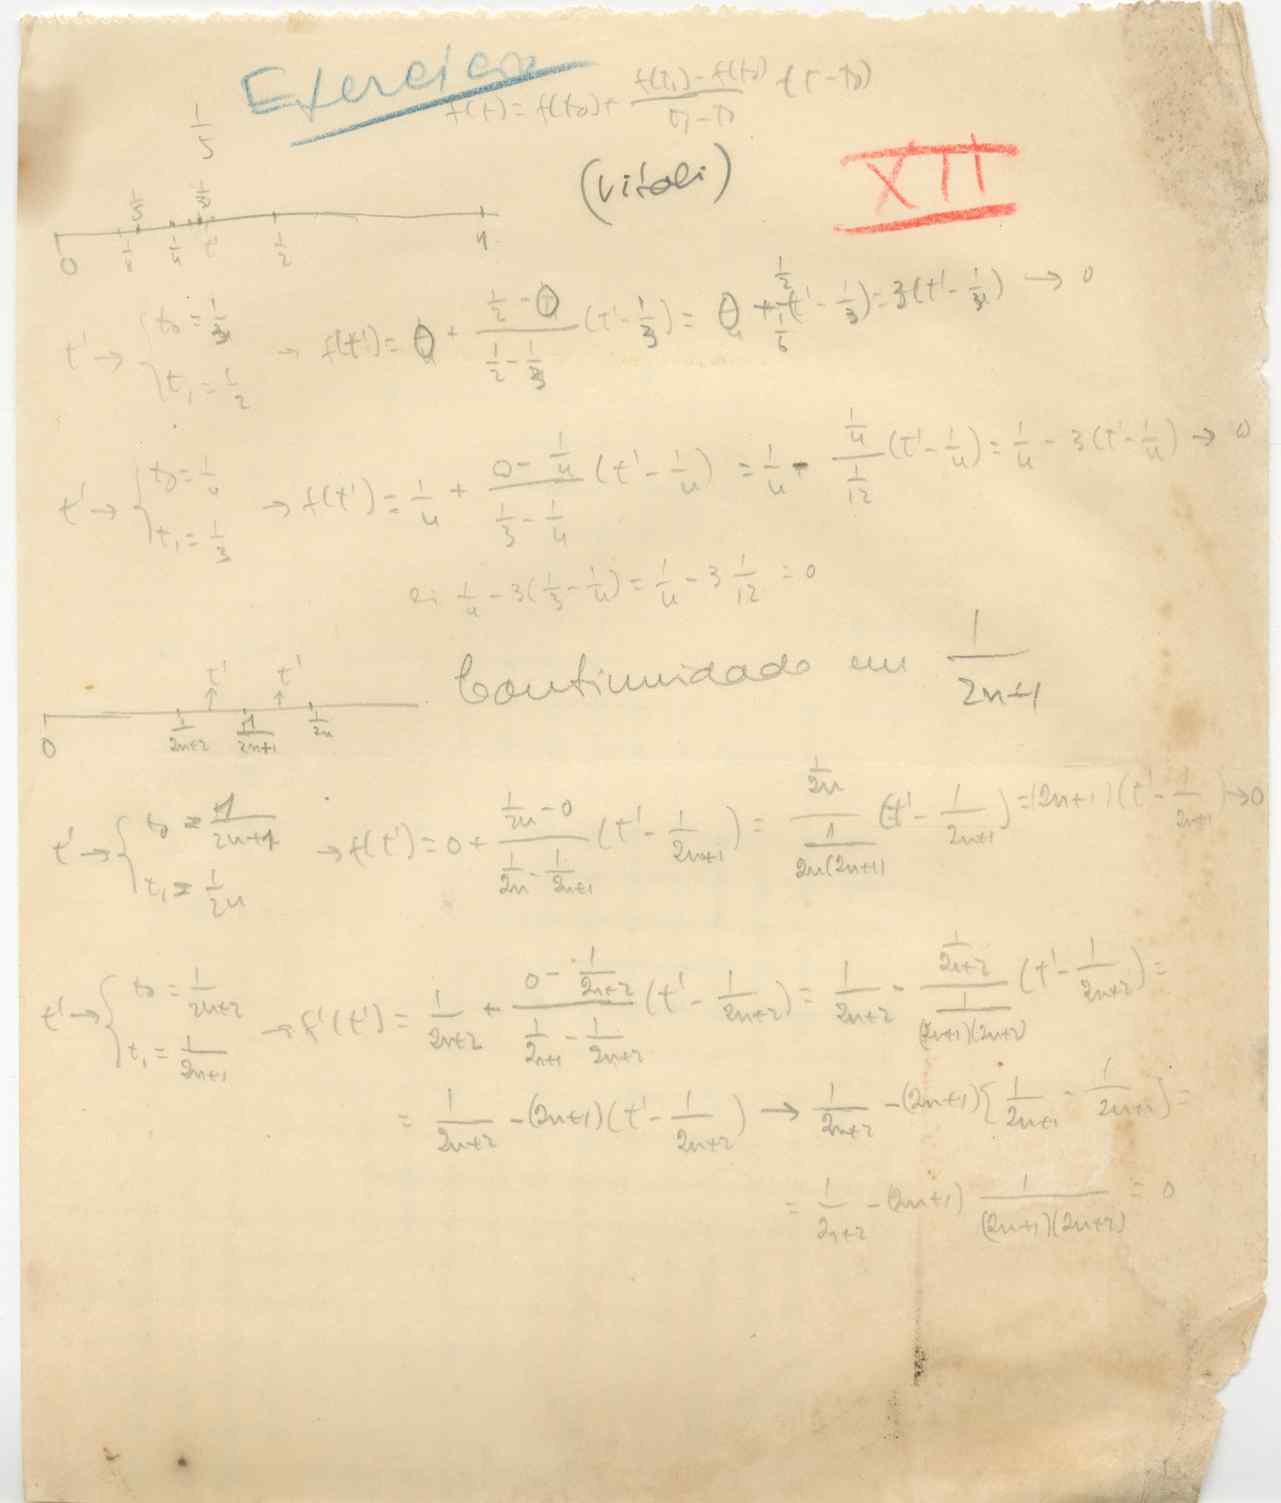 Exercícios
f(t) = f(t₀) + (f(t₁) - f(t₀))/(t₁ - t₀) · (t - t₀)
1/5
(Vitali)
XII
1/5 1/3
0 1/6 1/4 t' 1/2 1
t' → { t₀ = 1/3, t₁ = 1/2 → f(t') = 0 + (1/2 - 0)/(1/2 - 1/3) (t' - 1/3) = 0 + (1/2)/(1/6) (t' - 1/3) = 3(t' - 1/3) → 0
t' → { t₀ = 1/4, t₁ = 1/3 → f(t') = 1/4 + (0 - 1/4)/(1/3 - 1/4) (t' - 1/4) = 1/4 - (1/4)/(1/12) (t' - 1/4) = 1/4 - 3(t' - 1/4) → 0
1/4 - 3(1/3 - 1/4) = 1/4 - 3 1/12 = 0
t' t'
0 1/(2n+2) 1/(2n+1) 1/2n
Continuidade em 1/(2n+1)
t' → { t₀ = 1/(2n+1), t₁ = 1/2n → f(t') = 0 + (1/2n - 0)/(1/2n - 1/(2n+1)) (t' - 1/(2n+1)) = (1/2n)/(1/(2n(2n+1))) (t' - 1/(2n+1)) = (2n+1)(t' - 1/(2n+1)) → 0
t' → { t₀ = 1/(2n+2), t₁ = 1/(2n+1) → f'(t') = 1/(2n+2) + (0 - 1/(2n+2))/(1/(2n+1) - 1/(2n+2)) (t' - 1/(2n+2)) = 1/(2n+2) - (1/(2n+2))/(1/((2n+1)(2n+2))) (t' - 1/(2n+2)) =
= 1/(2n+2) - (2n+1)(t' - 1/(2n+2)) → 1/(2n+2) - (2n+1)[1/(2n+1) - 1/(2n+2)] =
= 1/(2n+2) - (2n+1) 1/((2n+1)(2n+2)) = 0